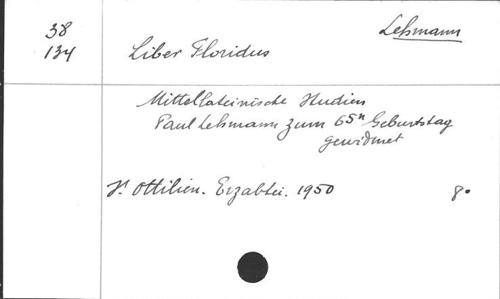 38
134
Lehmann
Liber Floridus
Mittellateinische Studien
Paul Lehmann zum 65n Geburtstag
gewidmet
St Ottilien. Erzabtei. 1950 8°